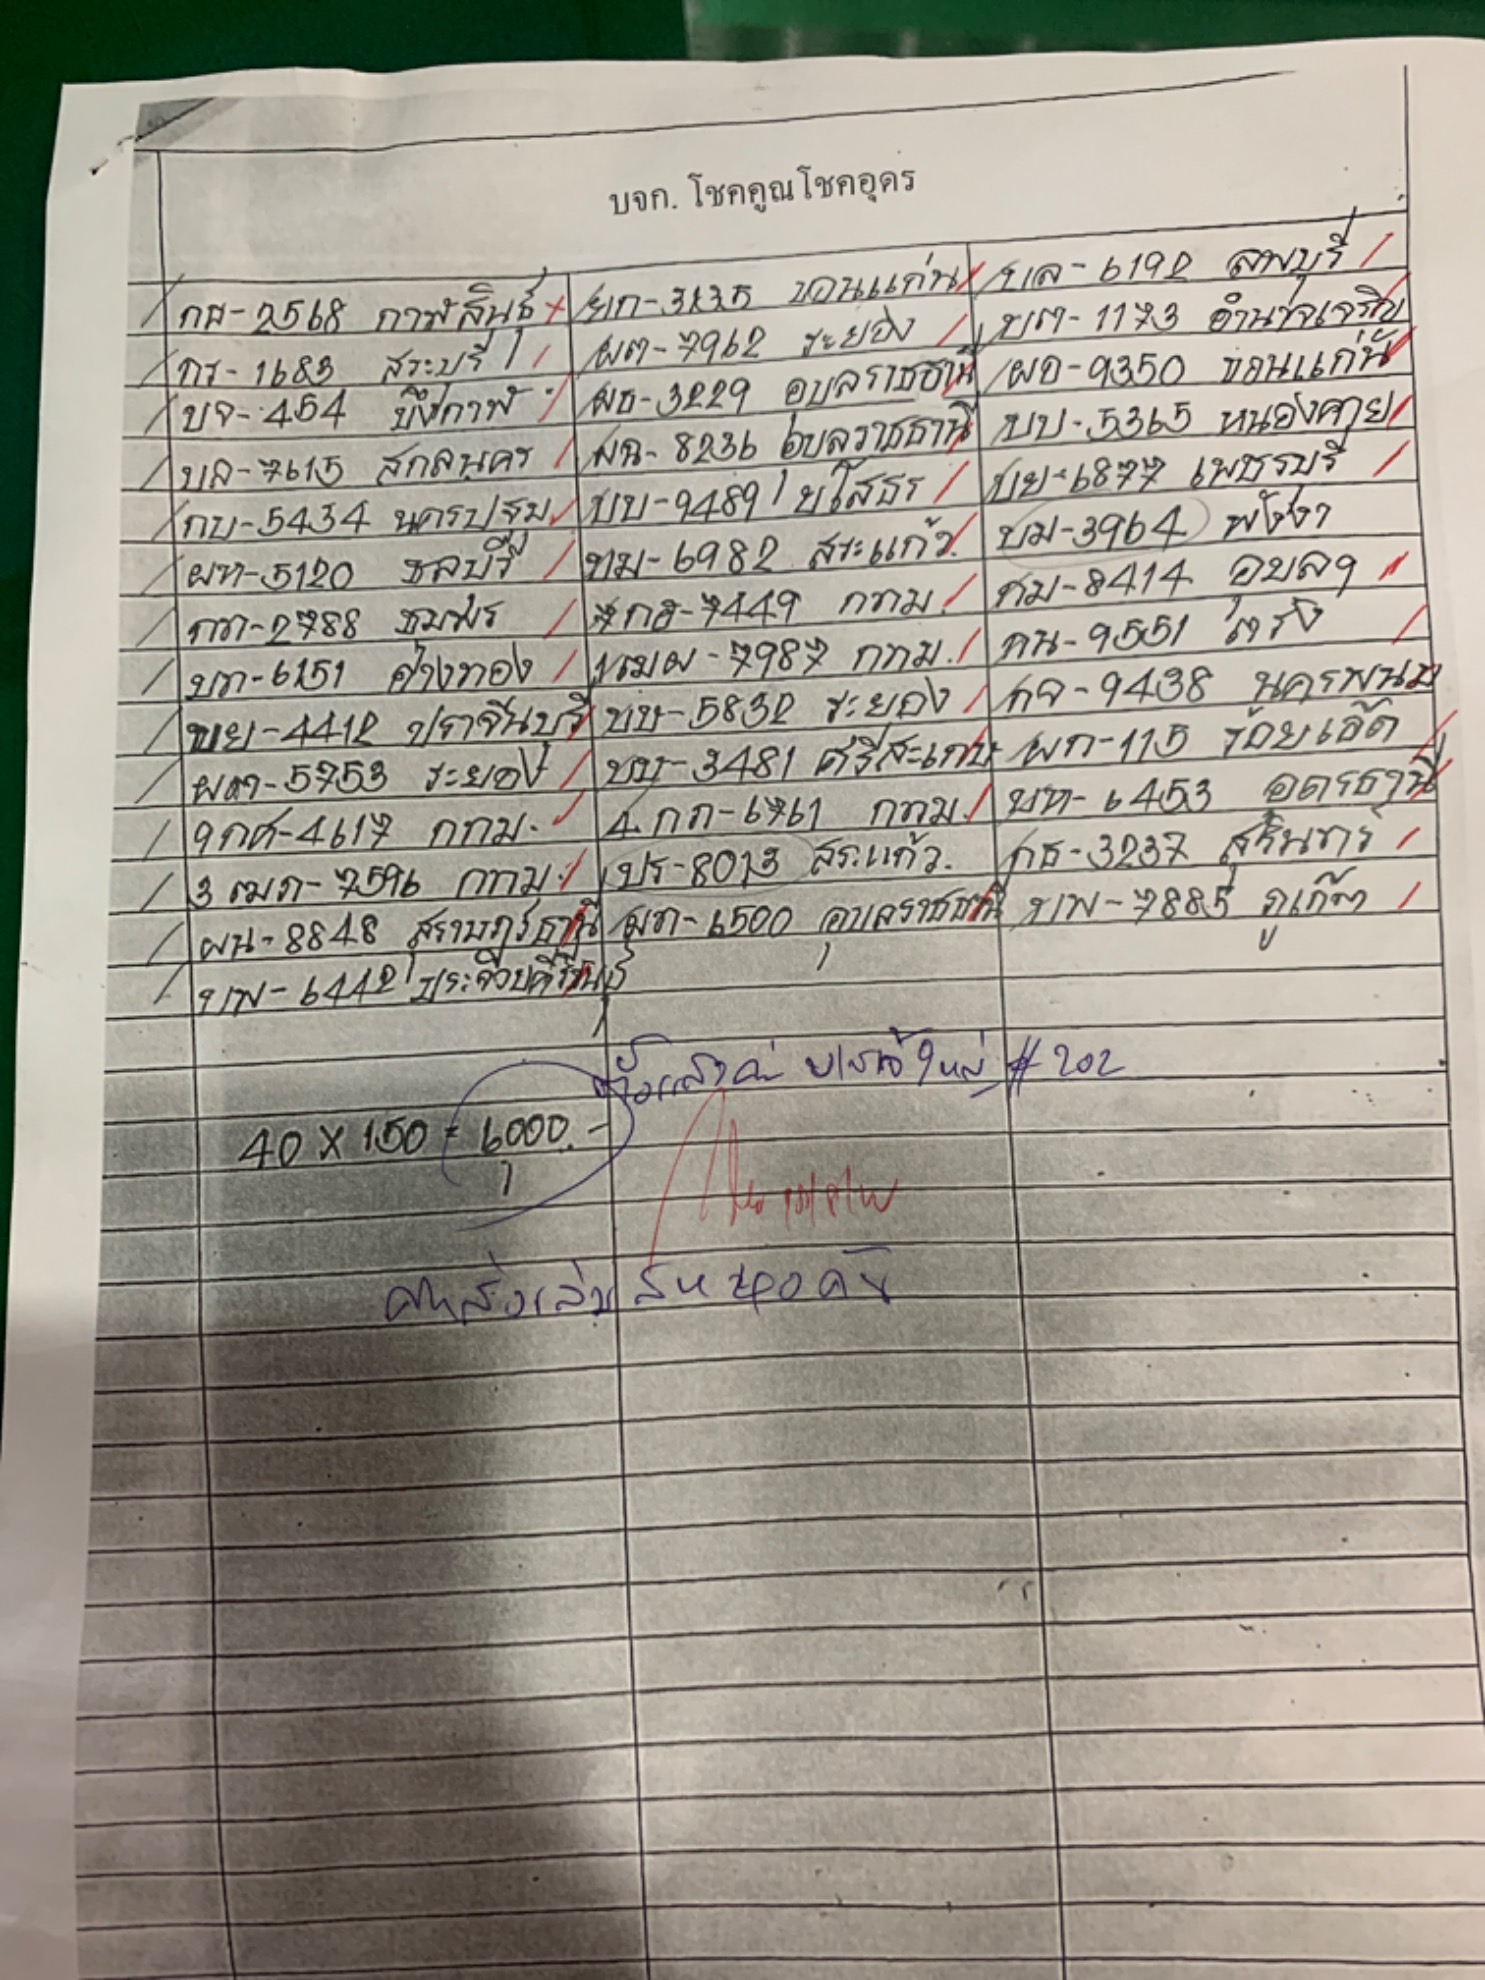 บจก. โชคคูณโชคอุดร
กส-2568 กาฬสินธุ์
กร-1683 สระบุรี
บจ-454 บึงกาฬ
บล-7615 สกลนคร
กบ-5434 นครปฐม
ผท-5120 ชลบุรี
กก-2788 ชุมพร
บก-6151 อ่างทอง
ขย-4412 ปราจีนบุรี
ผต-5753 ระยอง
9กศ-4617 กทม.
3 ฒภ-7596 กทม.
ผน-8848 สุราษฎร์ธานี
บพ-6442 ประจวบคีรีขันธ์
ยก-3235 ขอนแก่น
ผต-7962 ระยอง
ผธ-3229 อุบลราชธานี
ผฉ-8236 อุบลราชธานี
บบ-9489 ยโสธร
ฒม-6982 สระแก้ว
7กอ-7449 กทม.
1ฒผ-7987 กทม.
บษ-5832 ระยอง
3481 ศรีสะเกษ
4 กภ-6761 กทม.
ปร-8013 สระแก้ว.
ผก-6500 อุบลราชธานี
บล-6192 ลพบุรี
บต-1173 อำนาจเจริญ
ผอ-9350 ขอนแก่น
บบ-5365 หนองคาย
บย-6877 เพชรบุรี
บม-3964 พังงา
กม-8414 อุบลฯ
กน-9551 ตรัง
กจ-9438 นครพนม
ผก-115 ร้อยเอ็ด
บท-6453 อุดรธานี
กธ-3237 สุรินทร์
บพ-7885 ภูเก็ต
# 202
40 X 150 = 6000.-